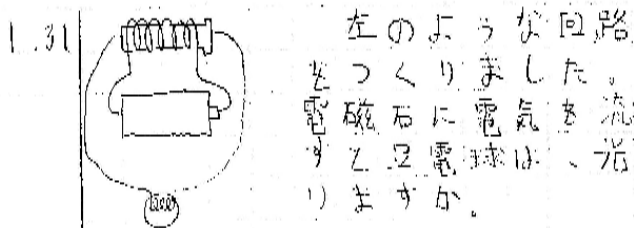 1.31
左のような回路
をつくりました。
電磁石に電気を流
すと豆電球は、光
りますか。